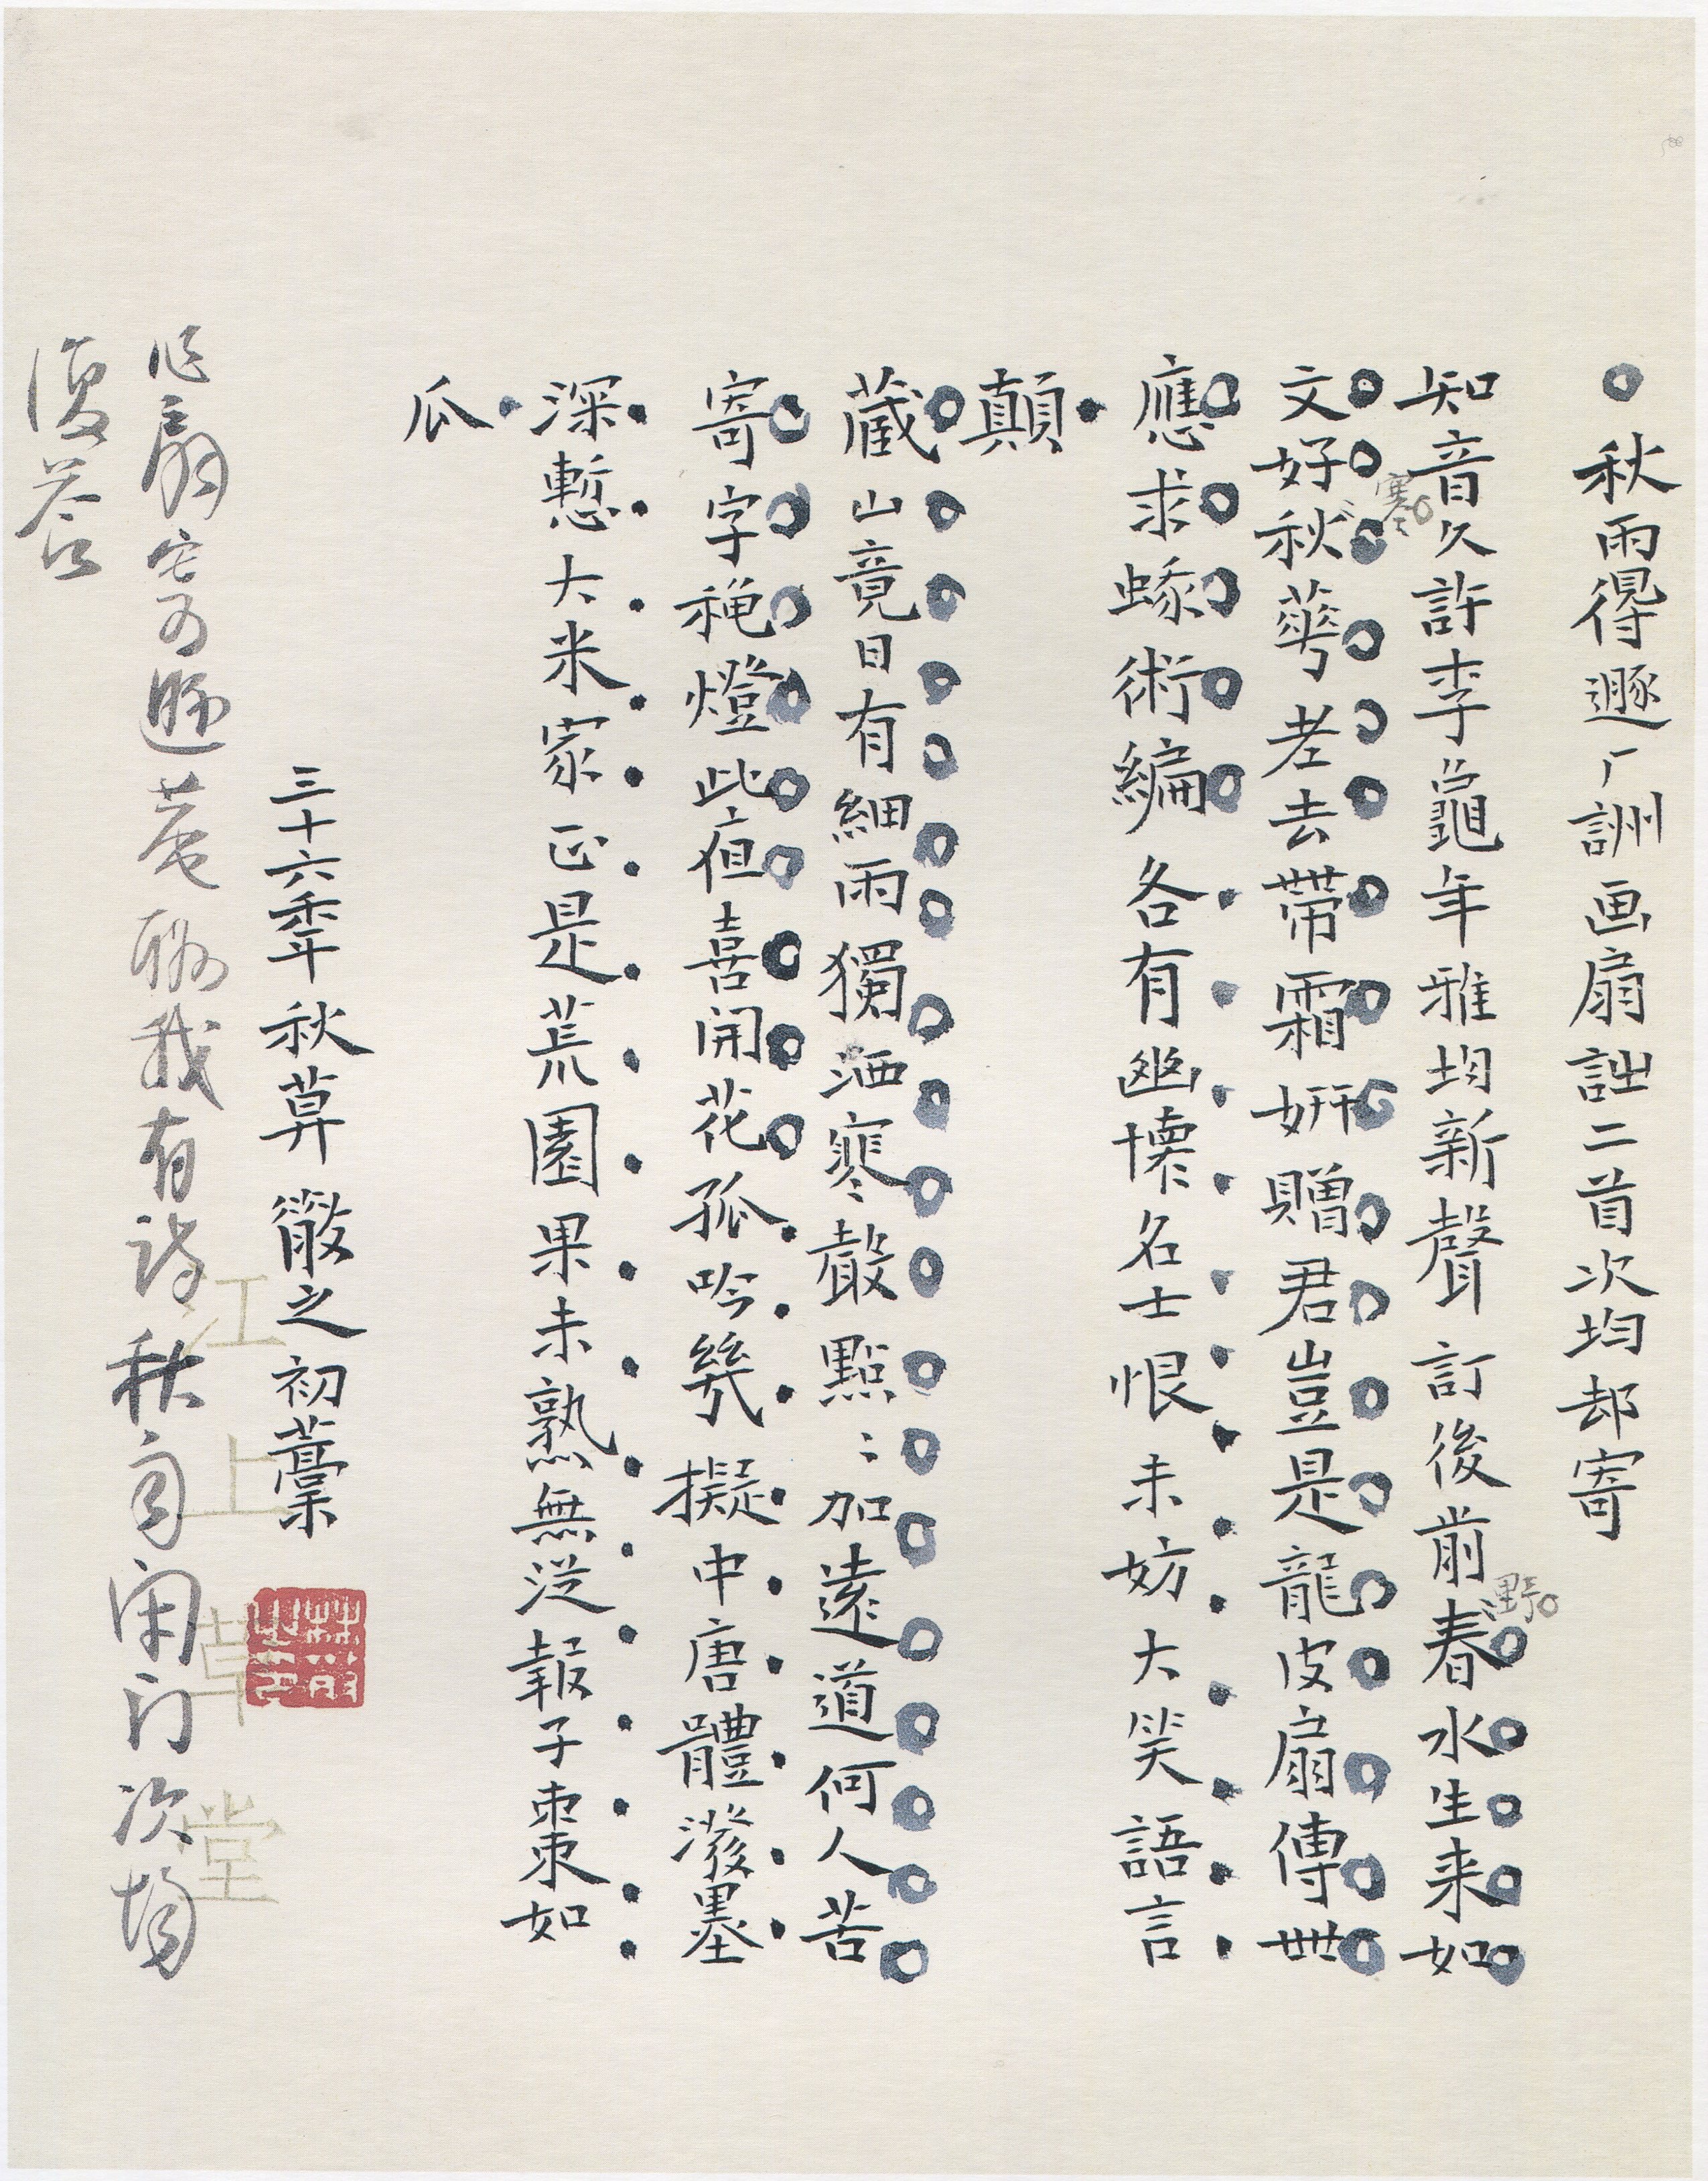 秋雨得遯厂詶画扇詘二首次均却寄
知音久許李龜年雅均新聲訂後前春水生来如
野
文好秋蕚老去帶霜妍贈君豈是龍皮扇傳世
寒
應求蝝術編各有幽懐名士恨未妨大笑語言
顛
蔵山竟日有細雨獨洒寒聲點〻加遠道何人苦
寄字穐燈此疸喜開花孤吟幾擬中唐體潑墨
深慙大米家正是荒園果未熟無從報子棗如
瓜
三十六年秋草散之初藁
作扇寄遯菴酬我有詩秋雨閉门次均
復答
江上草堂